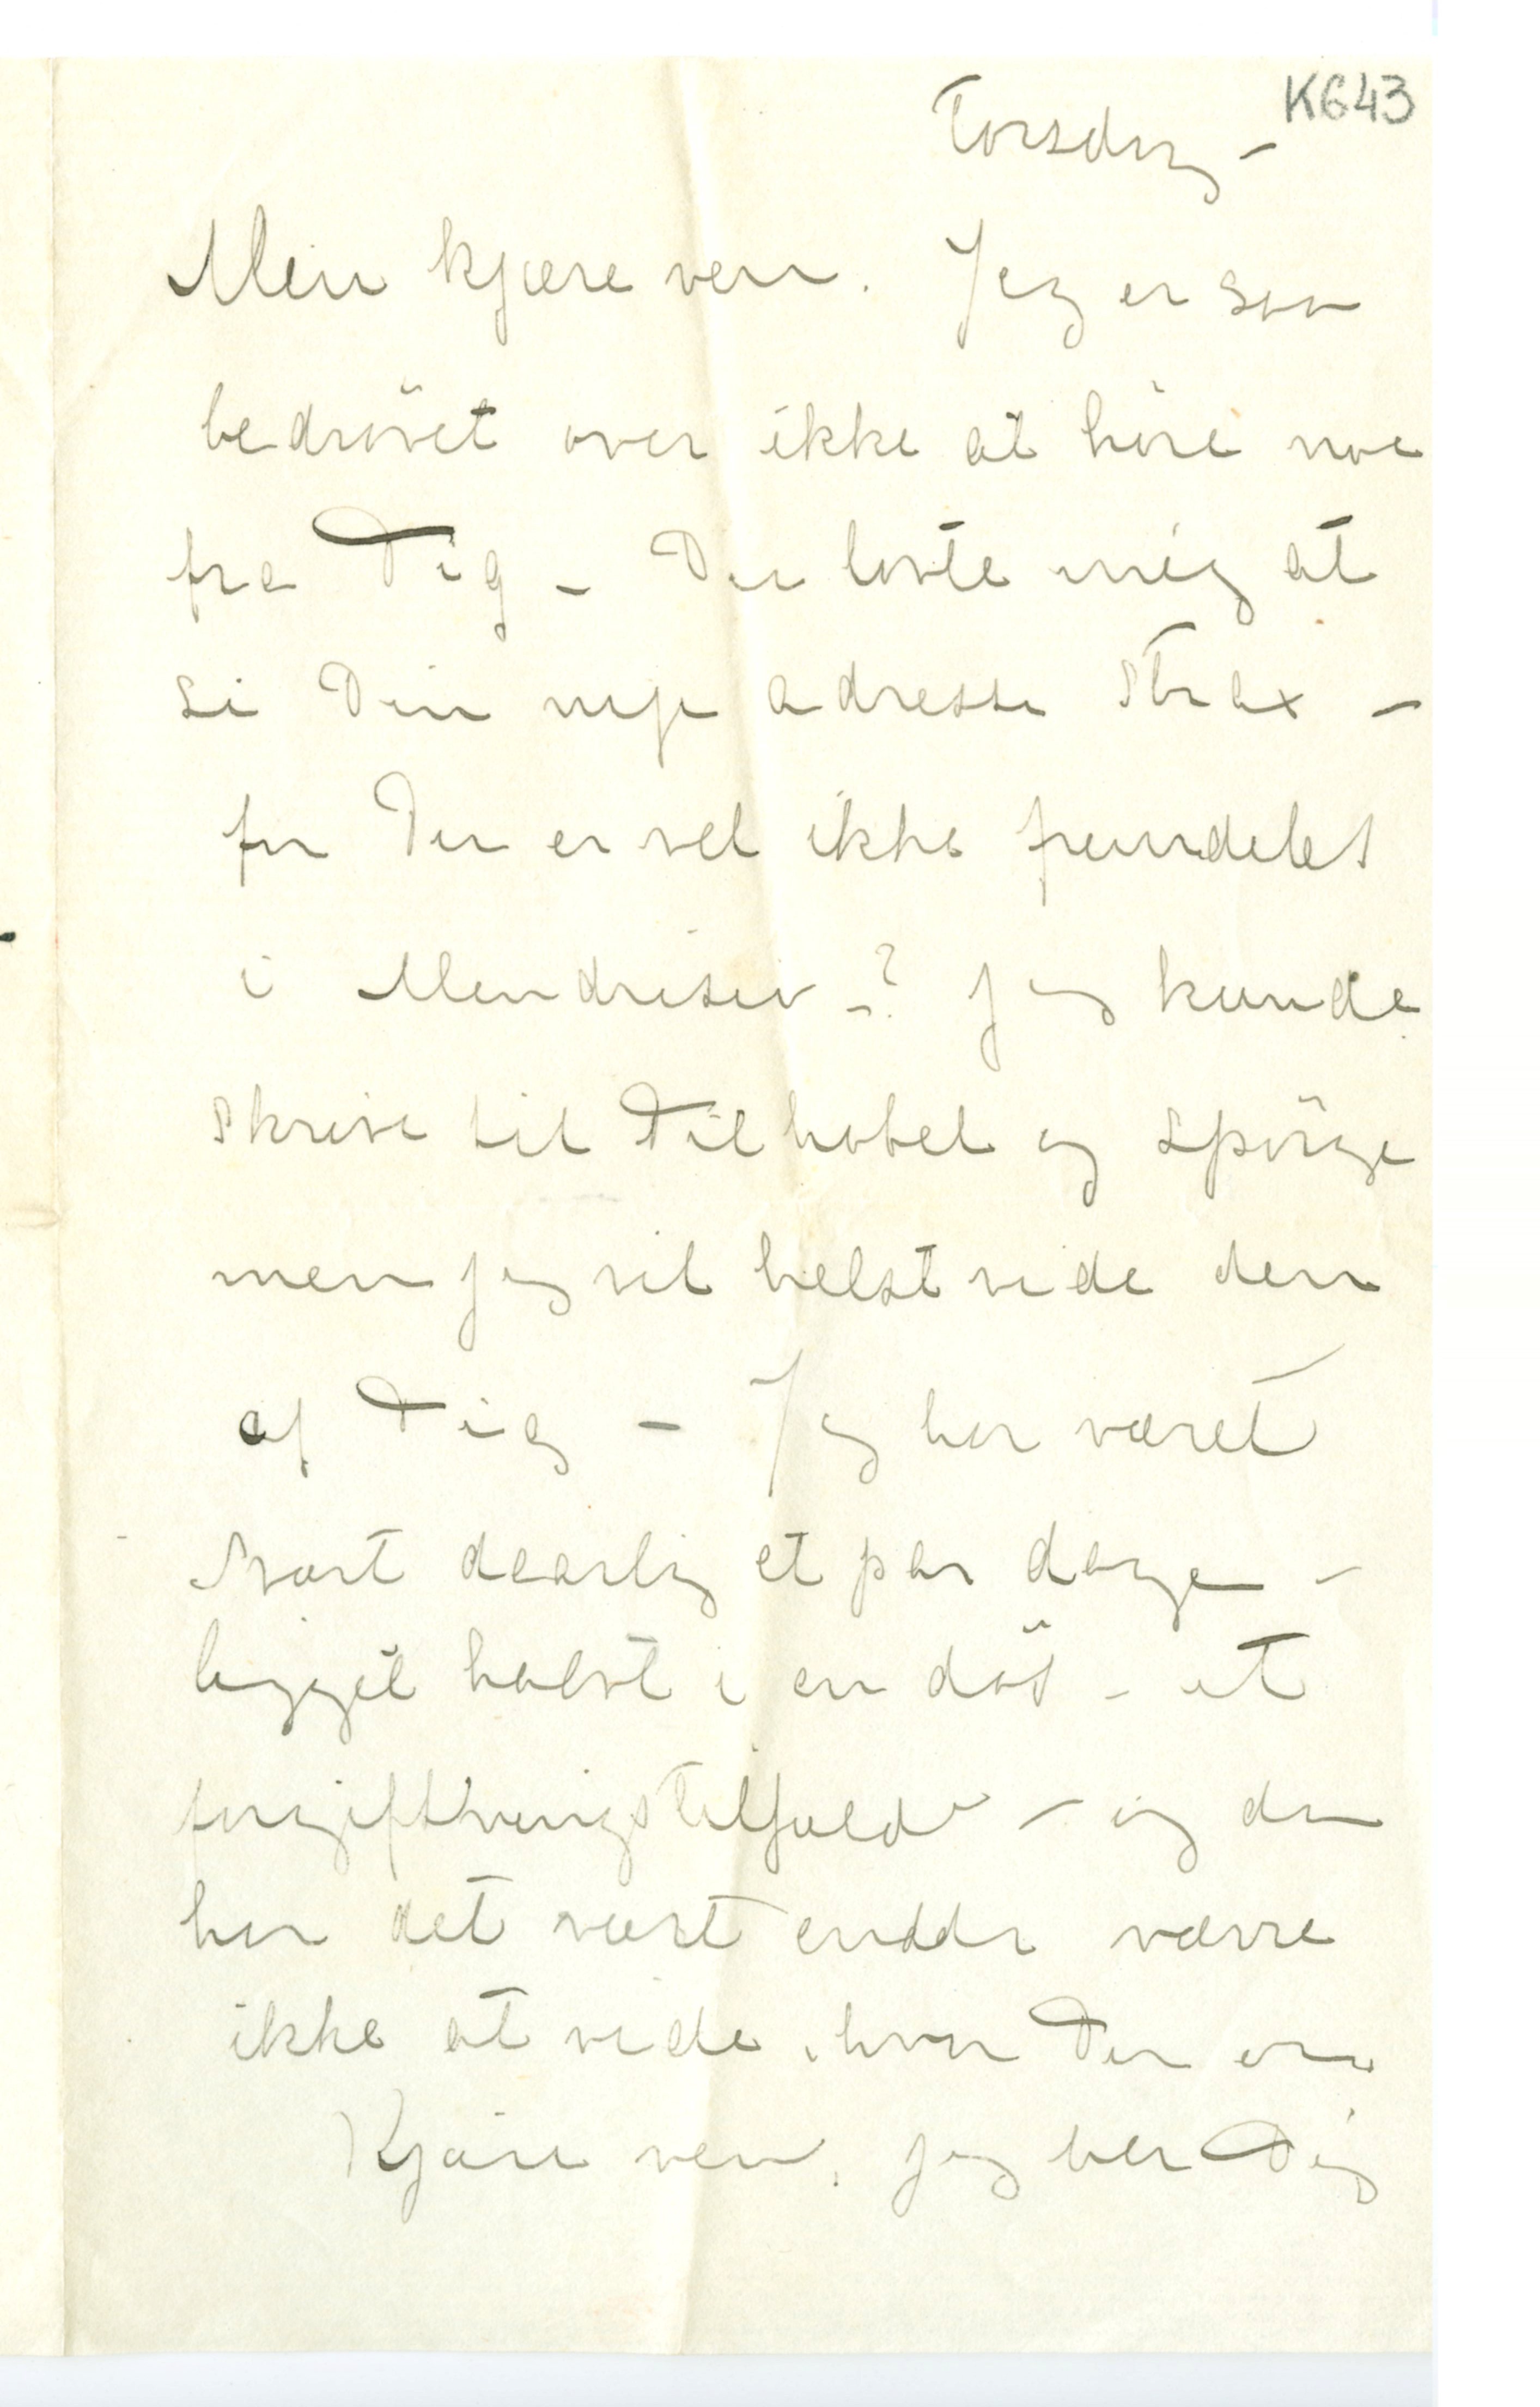 K643
Torsdag –
Min kjære ven. Jeg er saa
bedrövet over ikke at höre noe
fra Dig – Du lovte mig at
si Din nye adresse strax –
for Du er vel ikke fremdeles
i Mendrisio –? Jeg kunde
skrive til Dit hotel og spörge
men jeg vil helst vide den
af Dig – Jeg har været
svært daarlig et par dage –
ligget halvt i en dös – et
forgiftningstilfælde – og da
har det vært endda værre
ikke at vide, hvor Du er.
Kjære ven, jeg ber Dig